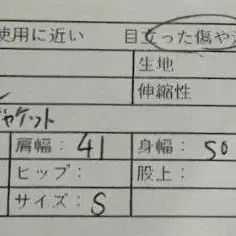 使用に近い 目立った傷や
生地
伸縮性
ジャケット
肩幅： 41 身幅： 50
ヒップ： 股上：
サイズ： S